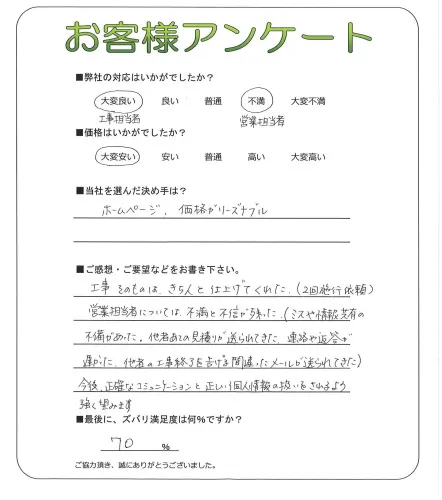 お客様アンケート
■弊社の対応はいかがでしたか?
大変良い 良い 普通 不満 大変不満
工事担当者 営業担当者
■価格はいかがでしたか?
大変安い 安い 普通 高い 大変高い
■当社を選んだ決め手は?
ホームページ、価格がリーズナブル
■ご感想・ご要望などをお書き下さい。
工事そのものは、きちんと仕上げてくれた。(2回施行依頼)
営業担当者については、不満と不信が残った。(ミスや情報共有の
不備があった。他者あての見積りが送られてきた、連絡や返答が
遅かった、他者の工事終了を告げる間違ったメールが送られてきた)
今後、正確なコミュニケーションと正しい個人情報の扱いをされるよう
強く望みます
■最後に、ズバリ満足度は何%ですか?
70 %
ご協力頂き、誠にありがとうございました。